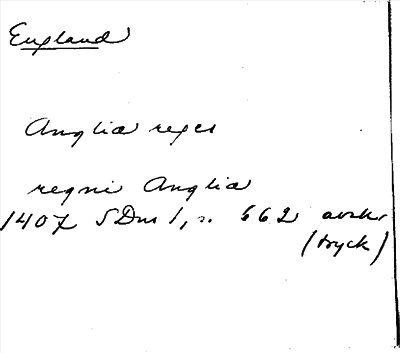 England
Anglia reges
regni Anglia
1407 SDns 1, n. 662 avskr
(tryck)